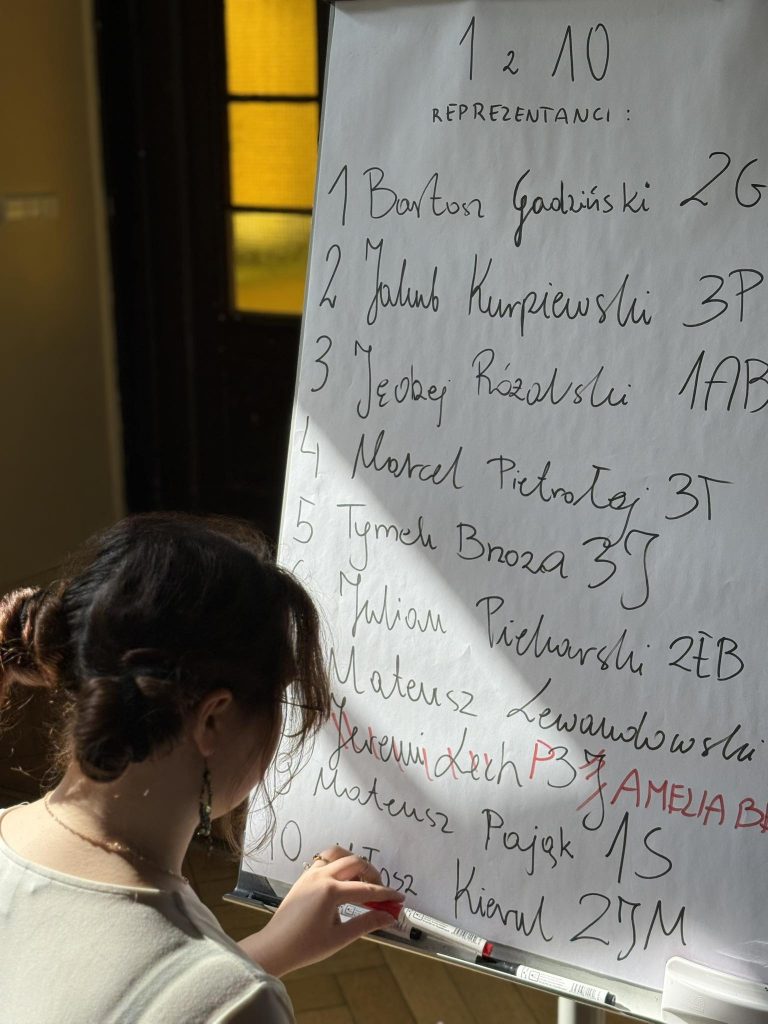 1 z 10
REPREZENTANCI :
1 Bartosz Gadziński 2G
2 Jakub Kurpiewski 3P
3 Jędrzej Różalski 1AB
4 Marcel Pietrołaj 3T
5 Tymek Brzoza 3J
Julian Piekarski 2EB
Mateusz Lewandowski
Jeremi Lech P 3J AMELIA
9 Mateusz Pająk 1S
10 Kierul 2JM